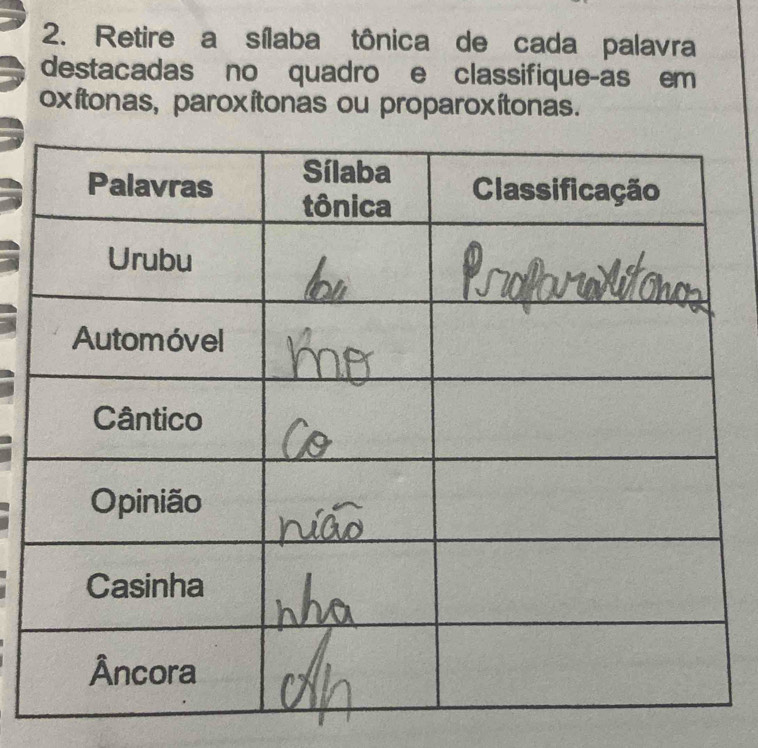 2. Retire a sílaba tônica de cada palavra
destacadas no quadro e classifique-as em
oxítonas, paroxítonas ou proparoxítonas.
Palavras Sílaba tônica Classificação
Urubu bu Proparoxítonas
Automóvel mo
Cântico Co
Opinião nião
Casinha nha
Âncora An